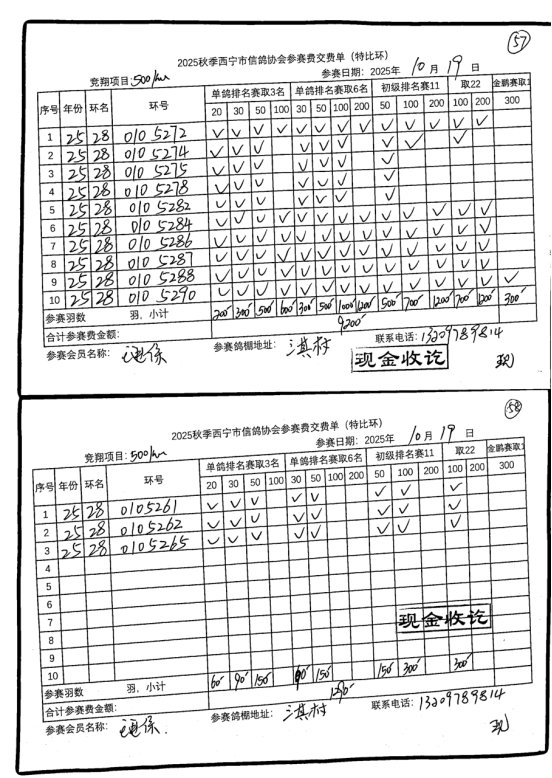 57
2025秋季西宁市信鸽协会参赛费交费单（特比环）
竞翔项目：500km 参赛日期：2025年 10 月 19 日
序号 年份 环名 环号 单鸽排名赛取3名 单鸽排名赛取6名 初级排名赛11 取22 金鹏赛取1
20 30 50 100 30 50 100 200 50 100 200 100 200 300
1 25 28 010 5272 ✓ ✓ ✓ ✓ ✓ ✓ ✓ ✓ ✓ ✓ ✓ ✓ ✓
2 25 28 010 5274 ✓ ✓ ✓ ✓ ✓ ✓ ✓ ✓ ✓
3 25 28 010 5275 ✓ ✓ ✓ ✓ ✓ ✓ ✓
4 25 28 010 5278 ✓ ✓ ✓ ✓ ✓ ✓ ✓
5 25 28 010 5282 ✓ ✓ ✓ ✓ ✓ ✓ ✓
6 25 28 010 5284 ✓ ✓ ✓ ✓ ✓ ✓ ✓ ✓ ✓ ✓ ✓ ✓ ✓
7 25 28 010 5286 ✓ ✓ ✓ ✓ ✓ ✓ ✓ ✓ ✓ ✓ ✓ ✓ ✓
8 25 28 010 5287 ✓ ✓ ✓ ✓ ✓ ✓ ✓ ✓ ✓ ✓ ✓ ✓ ✓
9 25 28 010 5288 ✓ ✓ ✓ ✓ ✓ ✓ ✓ ✓ ✓ ✓ ✓ ✓ ✓
10 25 28 010 5290 ✓ ✓ ✓ ✓ ✓ ✓ ✓ ✓ ✓ ✓ ✓ ✓ ✓ ✓
参赛羽数 羽，小计 200 300 500 600 300 500 1000 1200 500 700 1200 700 1200 300
合计参赛费金额： 9200
参赛会员名称： 参赛鸽棚地址： 联系电话：13209789814
现金收讫
现
58
2025秋季西宁市信鸽协会参赛费交费单（特比环）
竞翔项目：500km 参赛日期：2025年 10 月 19 日
序号 年份 环名 环号 单鸽排名赛取3名 单鸽排名赛取6名 初级排名赛11 取22 金鹏赛取1
20 30 50 100 30 50 100 200 50 100 200 100 200 300
1 25 28 0105261 ✓ ✓ ✓ ✓ ✓ ✓ ✓ ✓
2 25 28 0105262 ✓ ✓ ✓ ✓ ✓ ✓ ✓ ✓
3 25 28 0105265 ✓ ✓ ✓ ✓ ✓ ✓ ✓ ✓
4
5
6
7
现金收讫
8
9
10
参赛羽数 羽，小计 60 90 150 90 150 150 300 300
合计参赛费金额： 1290
参赛会员名称： 参赛鸽棚地址： 联系电话：13209789814
现